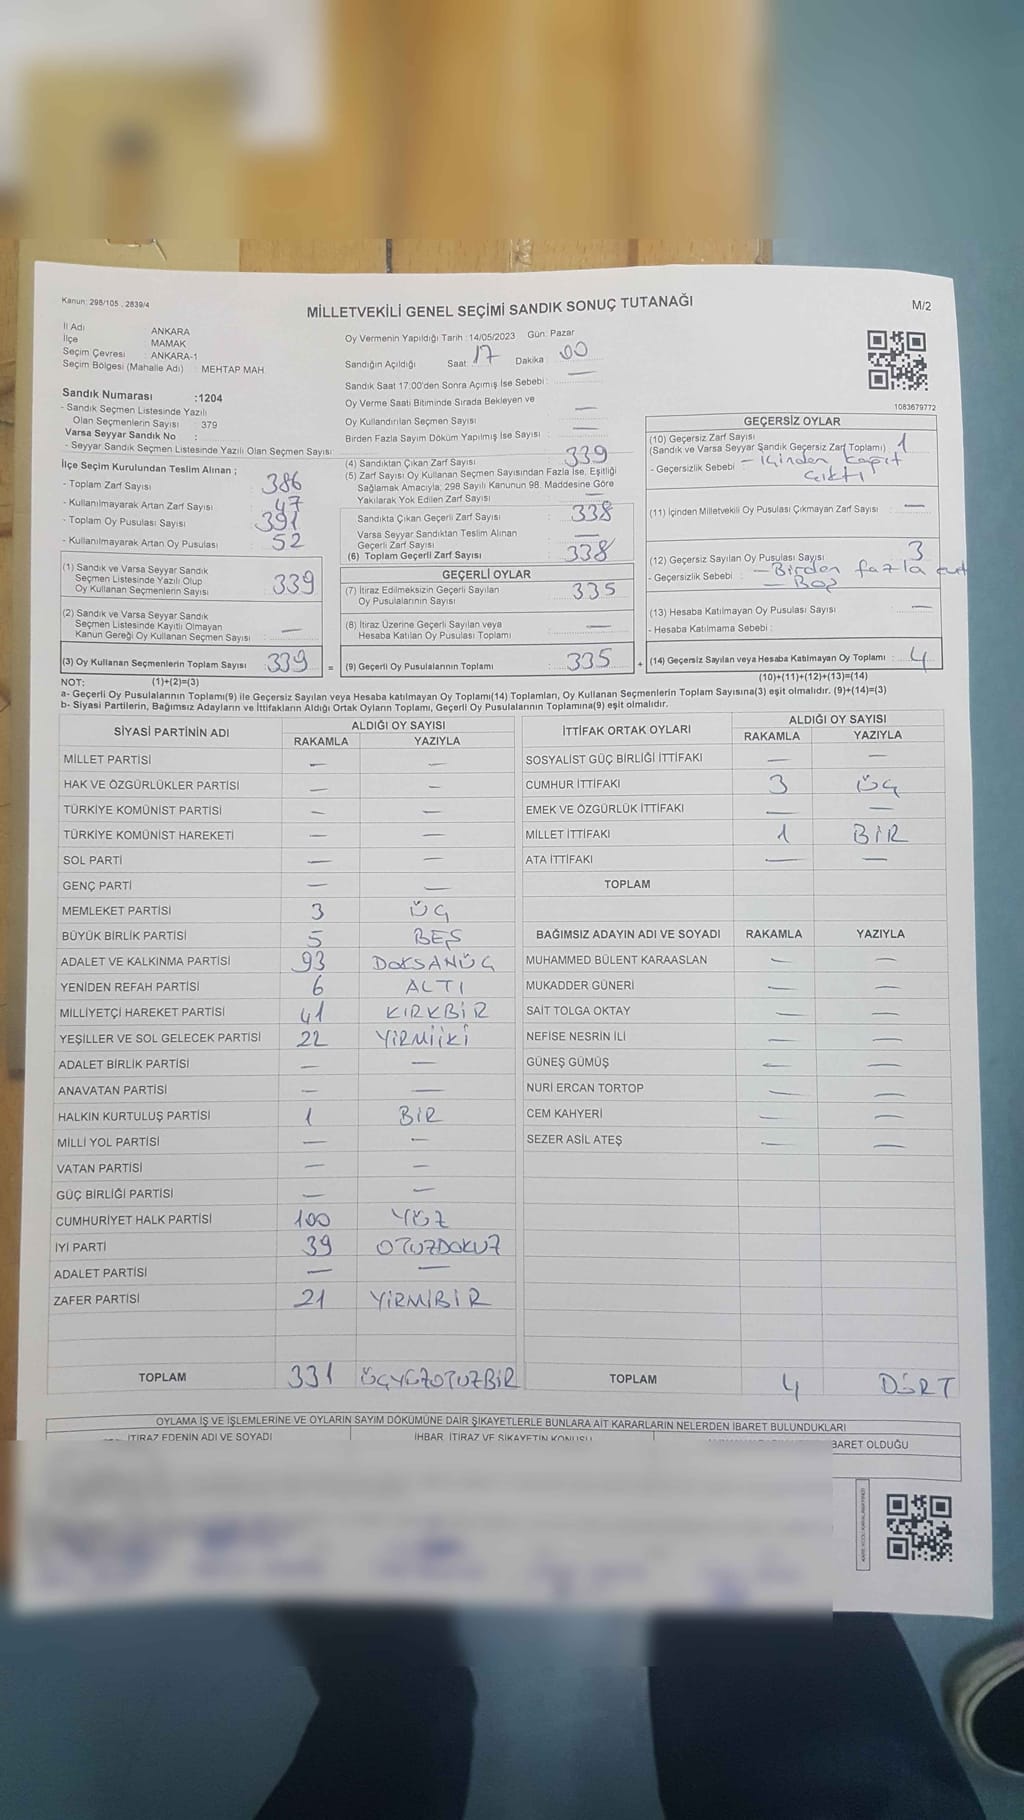 Kanun: 298/105 , 2839/4
MİLLETVEKİLİ GENEL SEÇİMİ SANDIK SONUÇ TUTANAĞI
M/2
İl Adı ANKARA
İlçe MAMAK
Seçim Çevresi : ANKARA-1
Seçim Bölgesi (Mahalle Adı) : MEHTAP MAH.
Sandık Numarası :1204
- Sandık Seçmen Listesinde Yazılı
Olan Seçmenlerin Sayısı : 379
Varsa Seyyar Sandık No :
- Seyyar Sandık Seçmen Listesinde Yazılı Olan Seçmen Sayısı
İlçe Seçim Kurulundan Teslim Alınan ;
- Toplam Zarf Sayısı : 386
- Kullanılmayarak Artan Zarf Sayısı : 47
- Toplam Oy Pusulası Sayısı : 391
- Kullanılmayarak Artan Oy Pusulası : 52
(1) Sandık ve Varsa Seyyar Sandık
Seçmen Listesinde Yazılı Olup
Oy Kullanan Seçmenlerin Sayısı : 339
(2) Sandık ve Varsa Seyyar Sandık
Seçmen Listesinde Kayıtlı Olmayan
Kanun Gereği Oy Kullanan Seçmen Sayısı : —
(3) Oy Kullanan Seçmenlerin Toplam Sayısı : 339 =
Oy Vermenin Yapıldığı Tarih :14/05/2023 Gün: Pazar
Sandığın Açıldığı Saat: 17 Dakika : 00
Sandık Saat 17:00'den Sonra Açımış İse Sebebi : —
Oy Verme Saati Bitiminde Sırada Bekleyen ve
Oy Kullandırılan Seçmen Sayısı : —
Birden Fazla Sayım Döküm Yapılmış İse Sayısı : —
(4) Sandıktan Çıkan Zarf Sayısı : 339
(5) Zarf Sayısı Oy Kullanan Seçmen Sayısından Fazla İse, Eşitliği
Sağlamak Amacıyla; 298 Sayılı Kanunun 98. Maddesine Göre
Yakılarak Yok Edilen Zarf Sayısı : —
Sandıkta Çıkan Geçerli Zarf Sayısı : 338
Varsa Seyyar Sandıktan Teslim Alınan
Geçerli Zarf Sayısı : —
(6) Toplam Geçerli Zarf Sayısı : 338
GEÇERLİ OYLAR
(7) İtiraz Edilmeksizin Geçerli Sayılan
Oy Pusulalarının Sayısı : 335
(8) İtiraz Üzerine Geçerli Sayılan veya
Hesaba Katılan Oy Pusulası Toplamı : —
(9) Geçerli Oy Pusulalarının Toplamı : 335 +
1083679772
GEÇERSİZ OYLAR
(10) Geçersiz Zarf Sayısı
(Sandık ve Varsa Seyyar Sandık Geçersiz Zarf Toplamı) : 1
- Geçersizlik Sebebi : — içinden kağıt
çıktı
(11) İçinden Milletvekili Oy Pusulası Çıkmayan Zarf Sayısı : —
(12) Geçersiz Sayılan Oy Pusulası Sayısı : 3
- Geçersizlik Sebebi : — Birden fazla
— Boş
(13) Hesaba Katılmayan Oy Pusulası Sayısı : —
- Hesaba Katılmama Sebebi :
(14) Geçersiz Sayılan veya Hesaba Katılmayan Oy Toplamı : 4
NOT: (1)+(2)=(3) (10)+(11)+(12)+(13)=(14)
a- Geçerli Oy Pusulalarının Toplamı(9) ile Geçersiz Sayılan veya Hesaba katılmayan Oy Toplamı(14) Toplamları, Oy Kullanan Seçmenlerin Toplam Sayısına(3) eşit olmalıdır. (9)+(14)=(3)
b- Siyasi Partilerin, Bağımsız Adayların ve İttifakların Aldığı Ortak Oyların Toplamı, Geçerli Oy Pusulalarının Toplamına(9) eşit olmalıdır.
SİYASİ PARTİNİN ADI ALDIĞI OY SAYISI
RAKAMLA YAZIYLA
MİLLET PARTİSİ — —
HAK VE ÖZGÜRLÜKLER PARTİSİ — —
TÜRKİYE KOMÜNİST PARTİSİ — —
TÜRKİYE KOMÜNİST HAREKETİ — —
SOL PARTİ — —
GENÇ PARTİ — —
MEMLEKET PARTİSİ 3 ÜÇ
BÜYÜK BİRLİK PARTİSİ 5 BEŞ
ADALET VE KALKINMA PARTİSİ 93 DOKSANÜÇ
YENİDEN REFAH PARTİSİ 6 ALTI
MİLLİYETÇİ HAREKET PARTİSİ 41 KIRKBİR
YEŞİLLER VE SOL GELECEK PARTİSİ 22 YİRMİİKİ
ADALET BİRLİK PARTİSİ — —
ANAVATAN PARTİSİ — —
HALKIN KURTULUŞ PARTİSİ 1 BİR
MİLLİ YOL PARTİSİ — —
VATAN PARTİSİ — —
GÜÇ BİRLİĞİ PARTİSİ — —
CUMHURİYET HALK PARTİSİ 100 YÜZ
İYİ PARTİ 39 OTUZDOKUZ
ADALET PARTİSİ — —
ZAFER PARTİSİ 21 YİRMİBİR
TOPLAM 331 ÜÇYÜZOTUZBİR
İTTİFAK ORTAK OYLARI ALDIĞI OY SAYISI
RAKAMLA YAZIYLA
SOSYALİST GÜÇ BİRLİĞİ İTTİFAKI — —
CUMHUR İTTİFAKI 3 ÜÇ
EMEK VE ÖZGÜRLÜK İTTİFAKI — —
MİLLET İTTİFAKI 1 BİR
ATA İTTİFAKI — —
TOPLAM
BAĞIMSIZ ADAYIN ADI VE SOYADI RAKAMLA YAZIYLA
MUHAMMED BÜLENT KARAASLAN — —
MUKADDER GÜNERİ — —
SAİT TOLGA OKTAY — —
NEFİSE NESRİN İLİ — —
GÜNEŞ GÜMÜŞ — —
NURİ ERCAN TORTOP — —
CEM KAHYERİ — —
SEZER ASİL ATEŞ — —
TOPLAM 4 DÖRT
OYLAMA İŞ VE İŞLEMLERİNE VE OYLARIN SAYIM DÖKÜMÜNE DAİR ŞİKAYETLERLE BUNLARA AİT KARARLARIN NELERDEN İBARET BULUNDUKLARI
İTİRAZ EDENİN ADI VE SOYADI İHBAR, İTİRAZ VE ŞİKAYETİN KONUSU BARET OLDUĞU